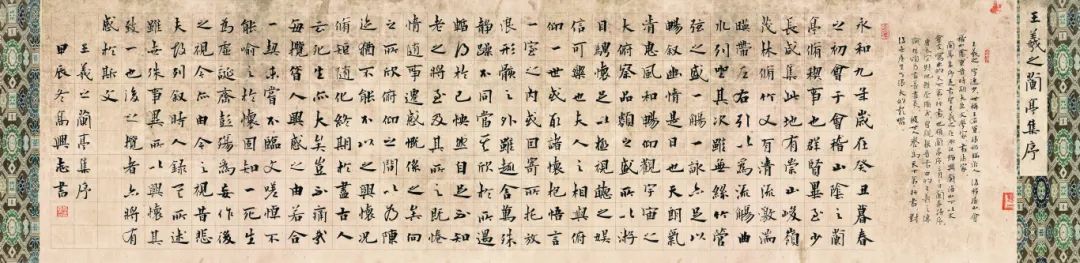 王羲之蘭亭集序
永和九年歲在癸丑暮春
之初會于會稽山陰之蘭
亭脩禊事也群賢畢至少
長咸集此地有崇山峻嶺
茂林脩竹又有清流激湍
暎帶左右引以為流觴曲
水列坐其次雖無絲竹管
弦之盛一觴一詠亦足以
暢叙幽情是日也天朗氣
清惠風和暢仰觀宇宙之
大俯察品類之盛所以遊
目騁懷足以極視聽之娛
信可樂也夫人之相與俯
仰一世或取諸懷抱悟言
一室之內或因寄所托放
浪形骸之外雖趣舍萬殊
靜躁不同當其欣於所遇
暫得於己怏然自足不知
老之將至及其所之既惓
情隨事遷感慨係之矣向
之所欣俛仰之間以為陳
迹猶不能不以之興懷況
脩短隨化終期於盡古人
云死生亦大矣豈不痛哉
每攬昔人興感之由若合
一契未嘗不臨文嗟悼不
能喻之於懷固知一死生
為虛誕齊彭殤為妄作後
之視今亦由今之視昔悲
夫故列叙時人錄其所述
雖世殊事異所以興懷其
致一也後之攬者亦將有
感於斯文
王羲之蘭亭集序
甲辰冬萬興志書